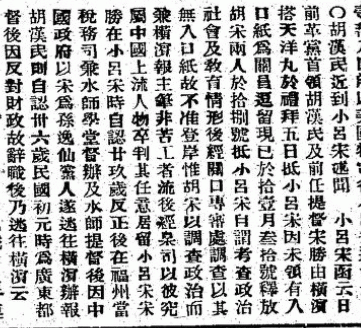 〇胡漢民近到小呂宋述聞　小呂宋函云日
前革黨首領胡漢民及前任提督宋勝由橫濱
搭天洋丸於禮拜五日抵小呂宋因未領有入
口紙爲關員逗留現已於拾壹月叁拾號釋放
胡宋兩人於拾捌號抵小呂宋自謂考查政治
社會及敎育情形後經關口專審處調查以其
無入口紙故不准登岸惟胡宋以調查政治而
兼橫濱報主筆非苦工者流後經臬司以彼究
屬中國上流人物卒判其任意居留小呂宋宋
勝在小呂宋時自認廿九歲反正後在福州當
稅務司兼水師學堂督辦及水師提督後因中
國政府以宋爲孫逸仙黨人遂逃往橫濱辦報
胡漢民則自認卅六歲民國初元時爲廣東都
督後因反對財政故辭職後乃逃往橫濱云